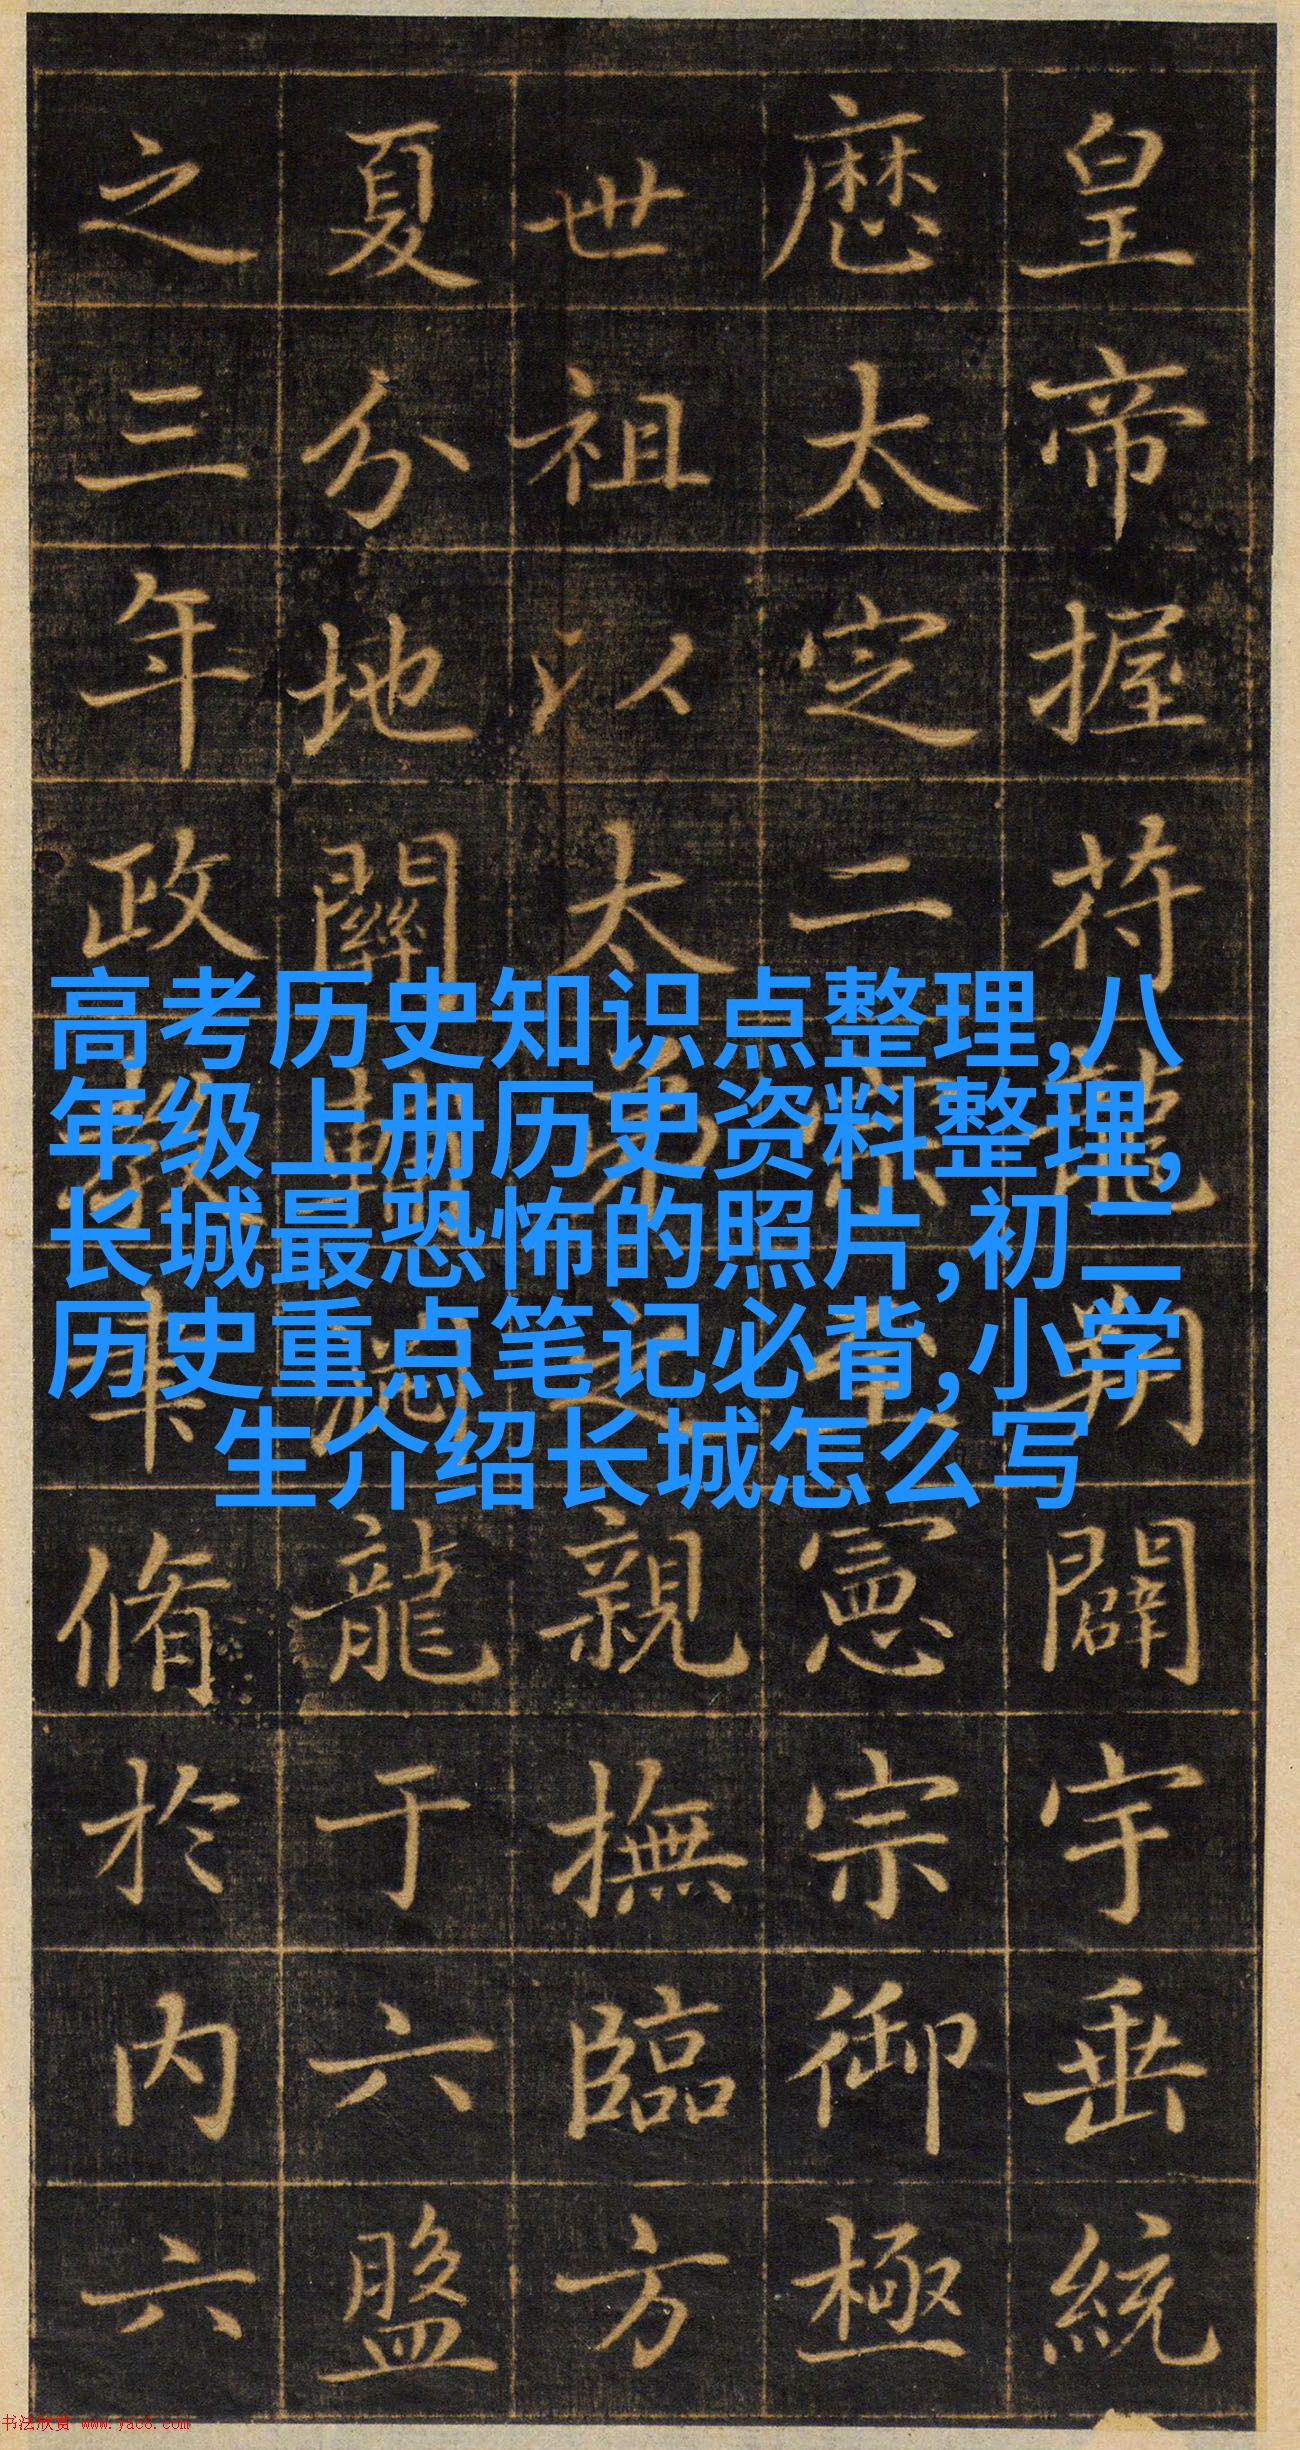 皇帝握符龍朔闢宇垂統
厯太定二憲宗御極
世祖以太弟之親撫臨方
夏分地關龍于六盤
之三年政教脩於内六
高考历史知识点整理,八
年级上册历史资料整理,
长城最恐怖的照片,初二
历史重点笔记必背,小学
生介绍长城怎么写
书法欣赏 www.yac8.com